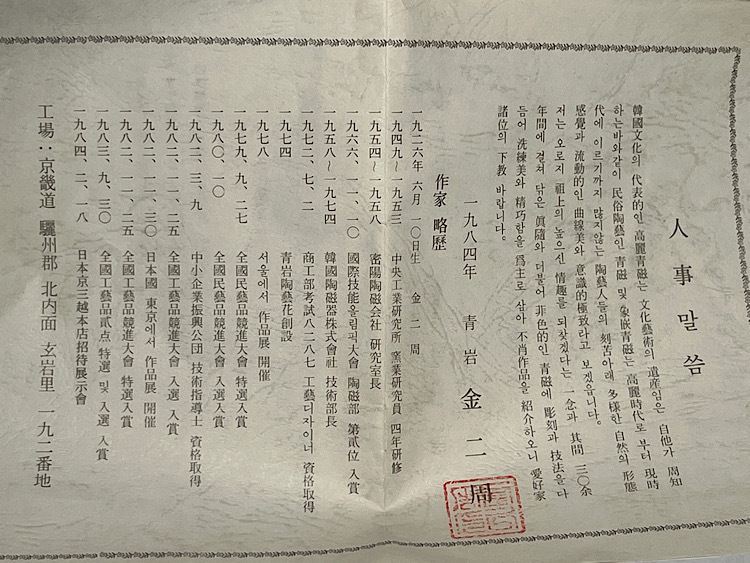 人事말씀
韓國文化의 代表的인 高麗靑磁는 文化藝術의 遺産임은 自他가 周知
하는바와같이 民俗陶藝인 靑磁 및 象嵌靑磁는 高麗時代로 부터 現時
代에 이르기까지 많지않는 陶藝人들의 刻苦아래 多樣한 自然의 形態
感覺과 流動的인 曲線美와 意識의 極致라고 보겠읍니다.
저는 오로지 祖上의 높으신 情趣를 되찾겠다는 一念과 其間 三〇余
年間에 걸쳐 닦은 眞隨와 더불어 非色的인 靑磁에 彫刻과 技法을 다
듬어 洗練美와 精巧함을 爲主로 삼아 不肖作品을 紹介하오니 愛好家
諸位의 下敎 바랍니다.
一九八四年 靑岩 金二周
作家 略歷
一九二六年 六月 一〇日生 金二周
一九四九~一九五三 中央工業硏究所 窯業硏究員 四年硏修
一九五四~一九五八 密陽陶磁会社 硏究室長
一九六六、一一、一〇 國際技能올림픽大會 陶磁部 第貳位 入賞
一九五八~一九七四 韓國陶磁器株式會社 技術部長
一九七二、七、二 商工部考試八二八七 工藝디자이너 資格取得
一九七四 靑岩陶藝花創設
一九七八 서울에서 作品展 開催
一九七九、九、二七 全國民藝品競進大會 特選入賞
一九八〇、一〇 全國民藝品競進大會 入選 入賞
一九八二、三、九 中小企業振興公団 技術指導士 資格取得
一九八二、一一、二五 全國工藝品競進大會 入選 入賞
一九八二、一一、三〇 日本國 東京에서 作品展 開催
一九八二、一一、二五 全國工藝品競進大會 特選入賞
一九八三、九、三〇 全國工藝品貳点 特選 및 入選 入賞
一九八四、二、一八 日本京三越本店招待展示會
工場:京畿道 驪州郡 北内面 玄岩里 一九二番地